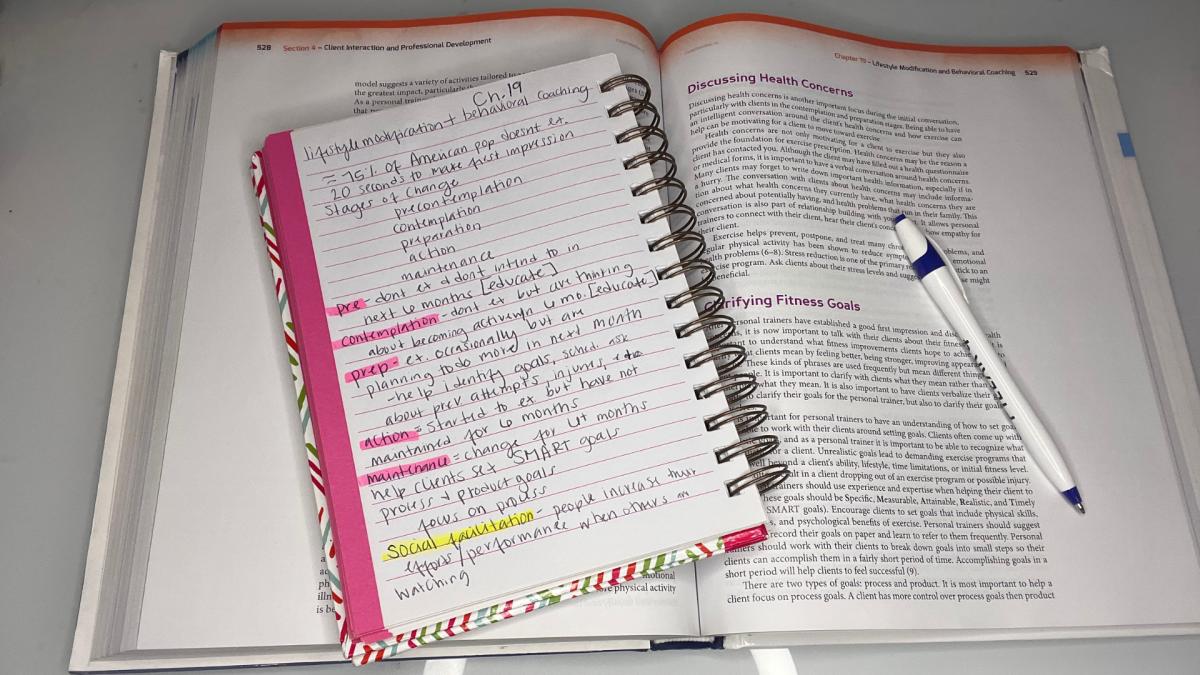 528 Section 4 – Client Interaction and Professional Development
model suggests a variety of activities tailored to
the greatest impact, particularly
As a personal
that
Ch. 19
lifestyle modification + behavioral coaching
≈ 75% of American pop doesnt ex.
20 seconds to make first impression
Stages of change
precontemplation
contemplation
preparation
action
maintenance
pre - dont ex & dont intend to in
next 6 months [educate]
contemplation - dont ex but are thinking
about becoming active 6 mo. [educate]
prep - ex. occasionally but are
planning to do more in next month
- help identify goals, sched. ask
about prev attempts, injuries,
action = started to ex but have not
maintained for 6 months
maintenance = change for 6+ months
help clients set SMART goals
process + product goals
focus on process
Social facilitation - people increase their
effort/performance when others are
watching
is be
physical activity
Chapter 19 – Lifestyle Modification and Behavioral Coaching 529
Discussing Health Concerns
Discussing health concerns is another important focus during the initial conversation,
particularly with clients in the contemplation and preparation stages. Being able to have
an intelligent conversation around the client's health concerns and how exercise can
help can be motivating for a client to move toward exercise.
Health concerns are not only motivating for a client to exercise but they also
provide the foundation for exercise prescription. Health concerns may be the reason a
client has contacted you. Although the client may have filled out a health questionnaire
or medical forms, it is important to have a verbal conversation around health concerns.
Many clients may forget to write down important health information, especially if in
a hurry. The conversation with clients about health concerns may include informa-
tion about what health concerns they currently have, what health concerns they are
concerned about potentially having, and health problems that run in their family. This
conversation is also part of relationship building with you It allows personal
trainers to connect with their client, hear their client's show empathy for
their client.
Exercise helps prevent, postpone, and treat many problems, and
regular physical activity has been shown to reduce emotional
health problems (6–8). Stress reduction is one of the primary stick to an
exercise program. Ask clients about their stress levels and might
beneficial.
Clarifying Fitness Goals
personal trainers have established a good first impression and health
it is now important to talk with clients about their fitness It is
to understand what fitness improvements clients hope to
clients mean by feeling better, being stronger, improving
These kinds of phrases are used frequently but mean different
It is important to clarify with clients what they mean rather than
what they mean. It is also important to have clients verbalize their
clarify their goals for the personal trainer, but also to clarify their
important for personal trainers to have an understanding of how to set
to work with their clients around setting goals. Clients often come up with
and as a personal trainer it is important to be able to recognize what
for a client. Unrealistic goals lead to demanding exercise programs that
well beyond a client's ability, lifestyle, time limitations, or initial fitness level.
in a client dropping out of an exercise program or possible injury.
trainers should use experience and expertise when helping their client to
these goals should be Specific, Measurable, Attainable, Realistic, and Timely
SMART goals). Encourage clients to set goals that include physical skills,
and psychological benefits of exercise. Personal trainers should suggest
record their goals on paper and learn to refer to them frequently. Personal
trainers should work with their clients to break down goals into small steps so their
clients can accomplish them in a fairly short period of time. Accomplishing goals in a
short period will help clients to feel successful (9).
There are two types of goals: process and product. It is most important to help a
client focus on process goals. A client has more control over process goals then product